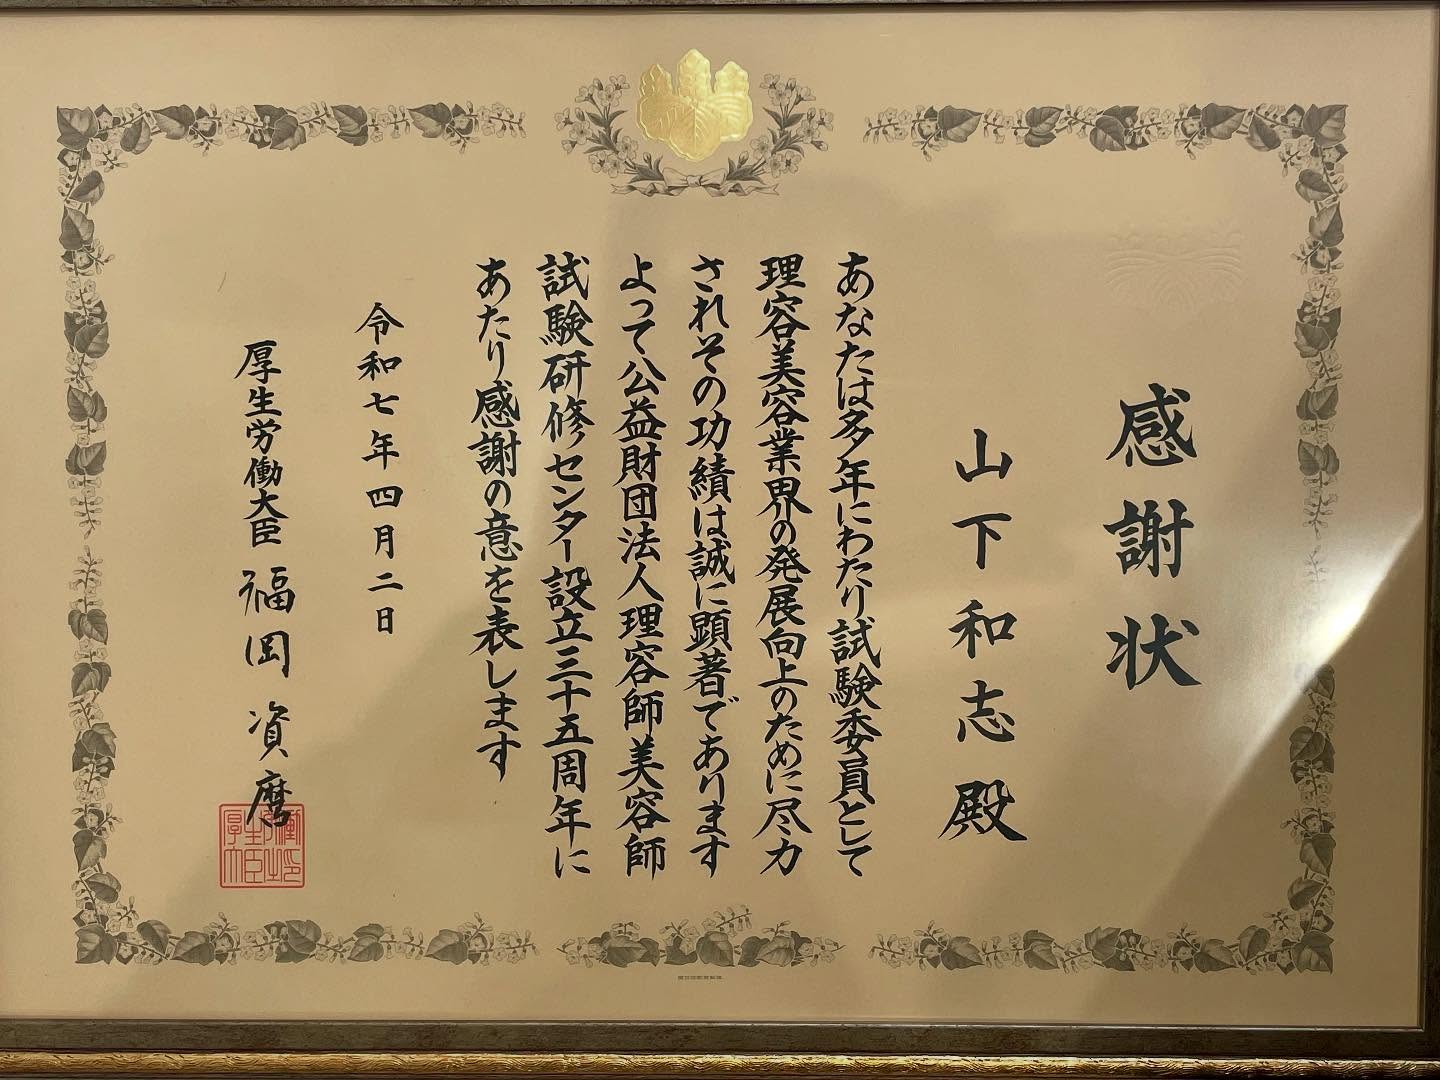 感謝状
山下和志殿
あなたは多年にわたり試験委員として
理容美容業界の発展向上のために尽力
されその功績は誠に顕著であります
よって公益財団法人理容師美容師
試験研修センター設立三十五周年に
あたり感謝の意を表します
令和七年四月二日
厚生労働大臣 福岡資麿